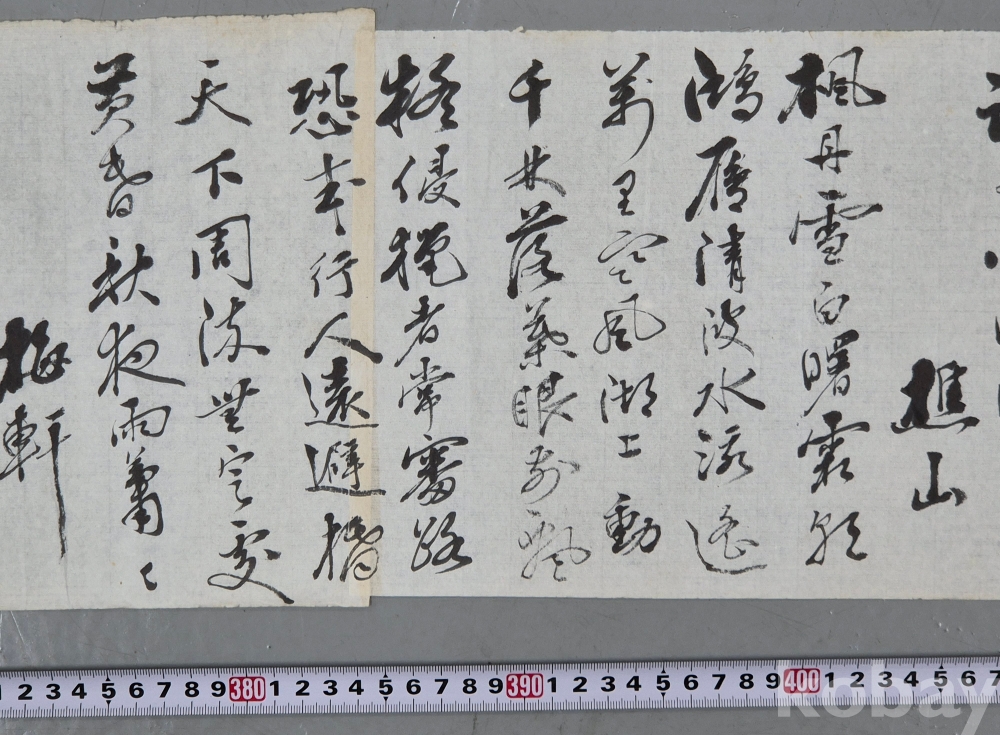 樵山
楓丹雪白曙霜朝
鴻雁清波水遙
萬里寒風湖上動
千林落葉眼前飄
侵獵者常路
恐行人遠避橋
天下周流無定處
黃昏秋夜雨蕭〻
梅軒
1 2 3 4 5 6 7 8 9 380 1 2 3 4 5 6 7 8 9 390 1 2 3 4 5 6 7 8 9 400 1 2 3 4 5 6 7
kobay